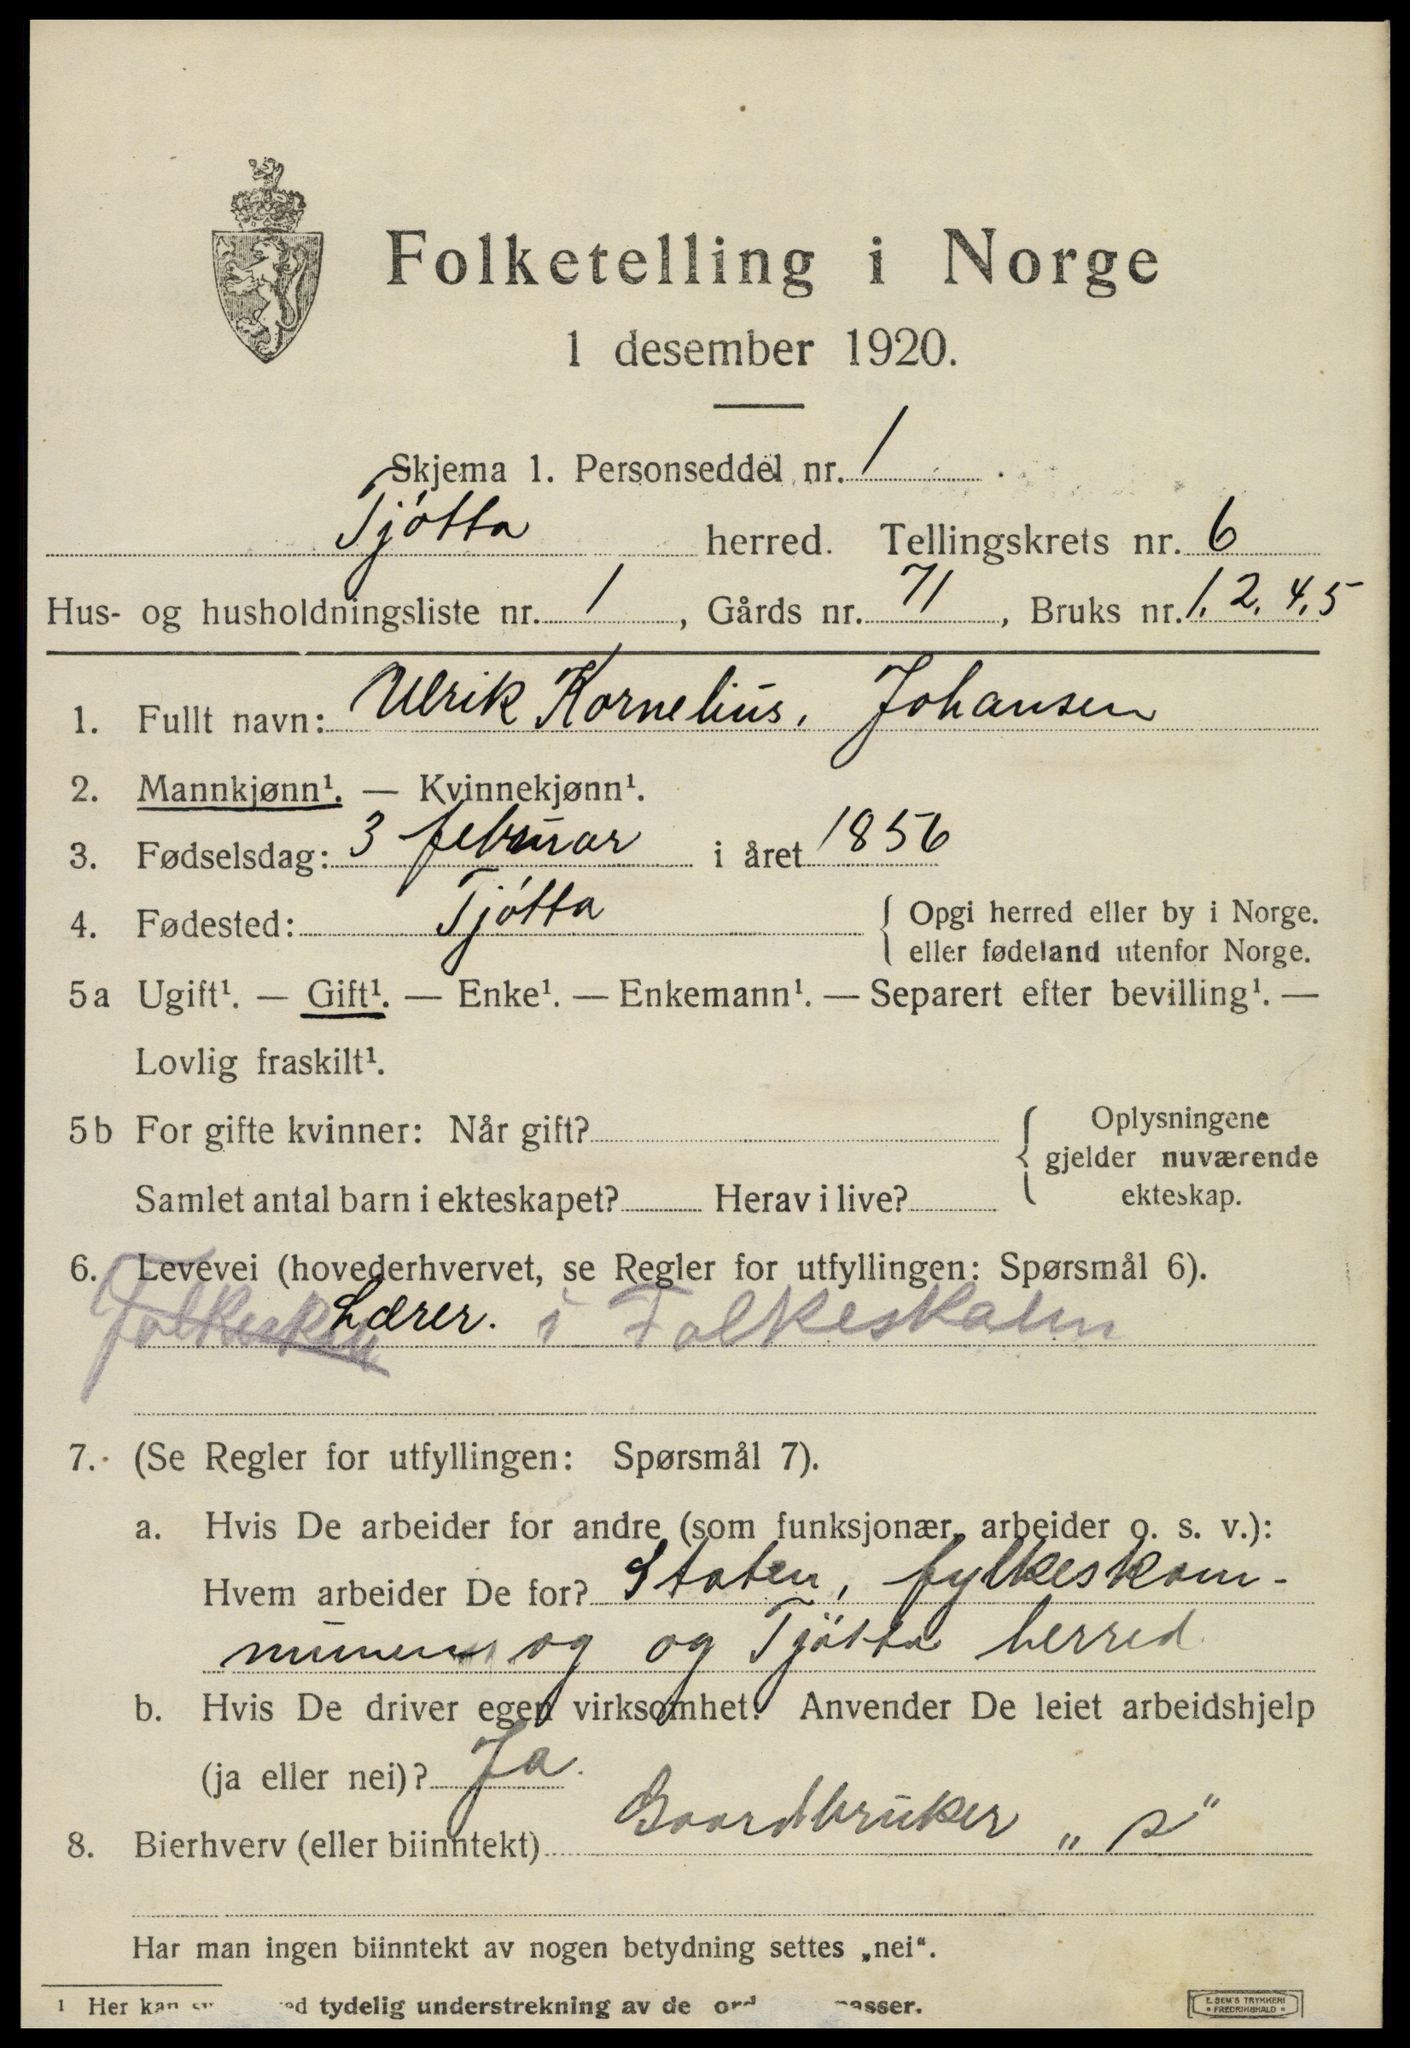 Folketelling i Norge
1 desember 1920.
Skjema 1. Personseddel nr. 1
Tjótta herred. Tellingskrets nr. 6
Hus- og husholdningsliste nr. 1, Gårds nr. 71, Bruks nr. 1, 2, 4, 5
1. Fullt navn: Ulrik Kornelius, Johansen
2. Mannkjønn¹. — Kvinnekjønn¹.
3. Fødselsdag: 3 februar i året 1856
4. Fødested: Tjótta { Opgi herred eller by i Norge.
eller fødeland utenfor Norge.
5a Ugift¹. — Gift¹. — Enke¹. — Enkemann¹. — Separert efter bevilling¹. —
Lovlig fraskilt¹.
5b For gifte kvinner: Når gift? { Oplysningene
gjelder nuværende
Samlet antal barn i ekteskapet? Herav i live? ekteskap.
6. Levevei (hovederhvervet, se Regler for utfyllingen: Spørsmål 6).
Lærer. i Folkeskolen
7. (Se Regler for utfyllingen: Spørsmål 7).
a. Hvis De arbeider for andre (som funksjonær, arbeider o. s. v.):
Hvem arbeider De for? Staten, fylkeskom-
munen og og Tjótta herred
b. Hvis De driver egen virksomhet: Anvender De leiet arbeidshjelp
(ja eller nei)? Ja.
8. Bierhverv (eller biinntekt) Gaardbruker „ s "
Har man ingen biinntekt av nogen betydning settes „nei".
¹ Her kan tydelig understrekning av de
E. SEM'S TRYKKERI
FREDRIKSHALD